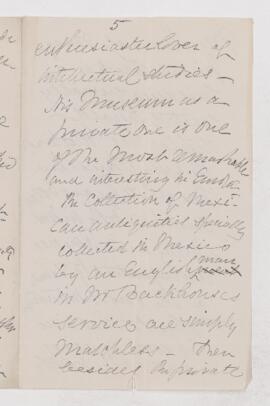 5
enthusiastic lover of
intellectual studies —
His Museum as a
private one is one
of the most remarkable
and interesting in Europe
The Collection of Mexi-
can antiquities specially
collected in Mexico
by an Englishman
in Mr Backhouse's
service are simply
Matchless — Then
besides his private